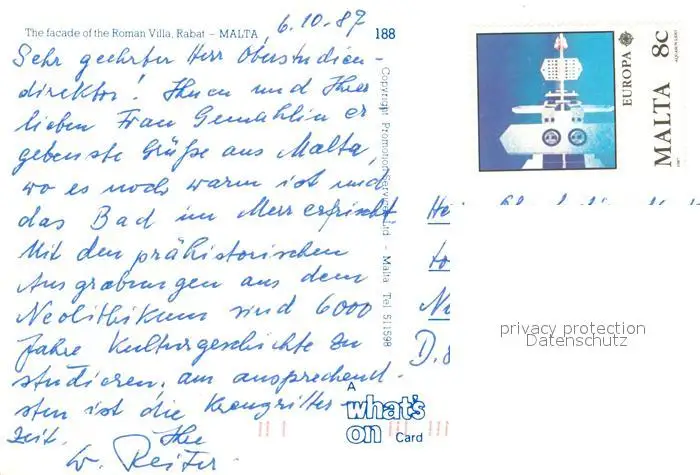 The facade of the Roman Villa, Rabat – MALTA
6.10.87
188
Sehr geehrter Herr Oberstudien-
direktor! Ihnen und Ihrer
lieben Frau Gemahlin er
gebenste Grüße aus Malta,
wo es noch warm ist und
das Bad im Meer erfrischt.
Mit den prähistorischen
Ausgrabungen aus dem
Neolithikum sind 6000
Jahre Kulturgeschichte zu
studieren, am ansprechend-
sten ist die Kreuzritter-
zeit. Ihr
W. Reiter
Copyright Promotion Services Ltd – Malta Tel 511598
A
what's
on Card
EUROPA
MALTA 8c
D.
privacy protection
Datenschutz